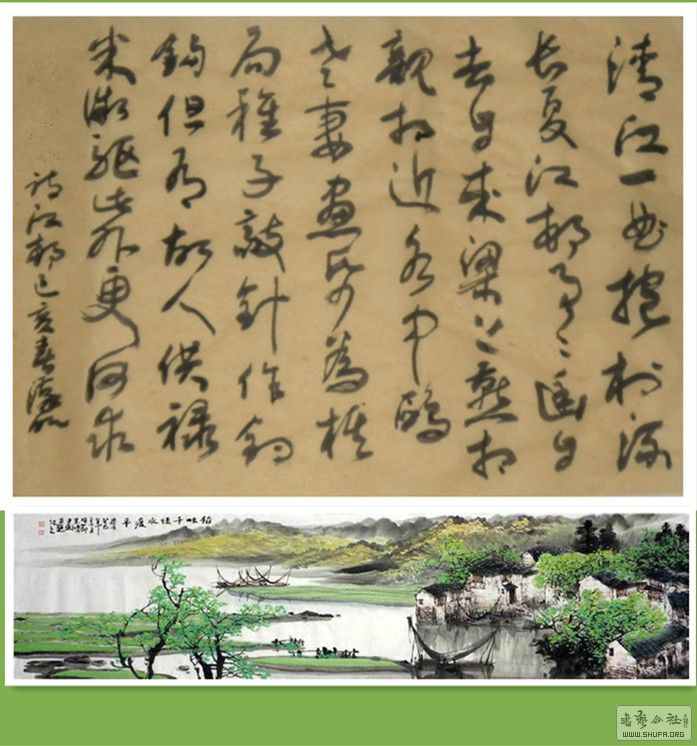 清江一曲抱村流
长夏江村事々幽自
去自来梁上燕相
親相近水中鸥
老妻画纸為棋
局稚子敲針作钓
钩但有故人供禄
米微躯此外更何求
诗江村己亥春
書藝公社
WWW.SHUFA.ORG